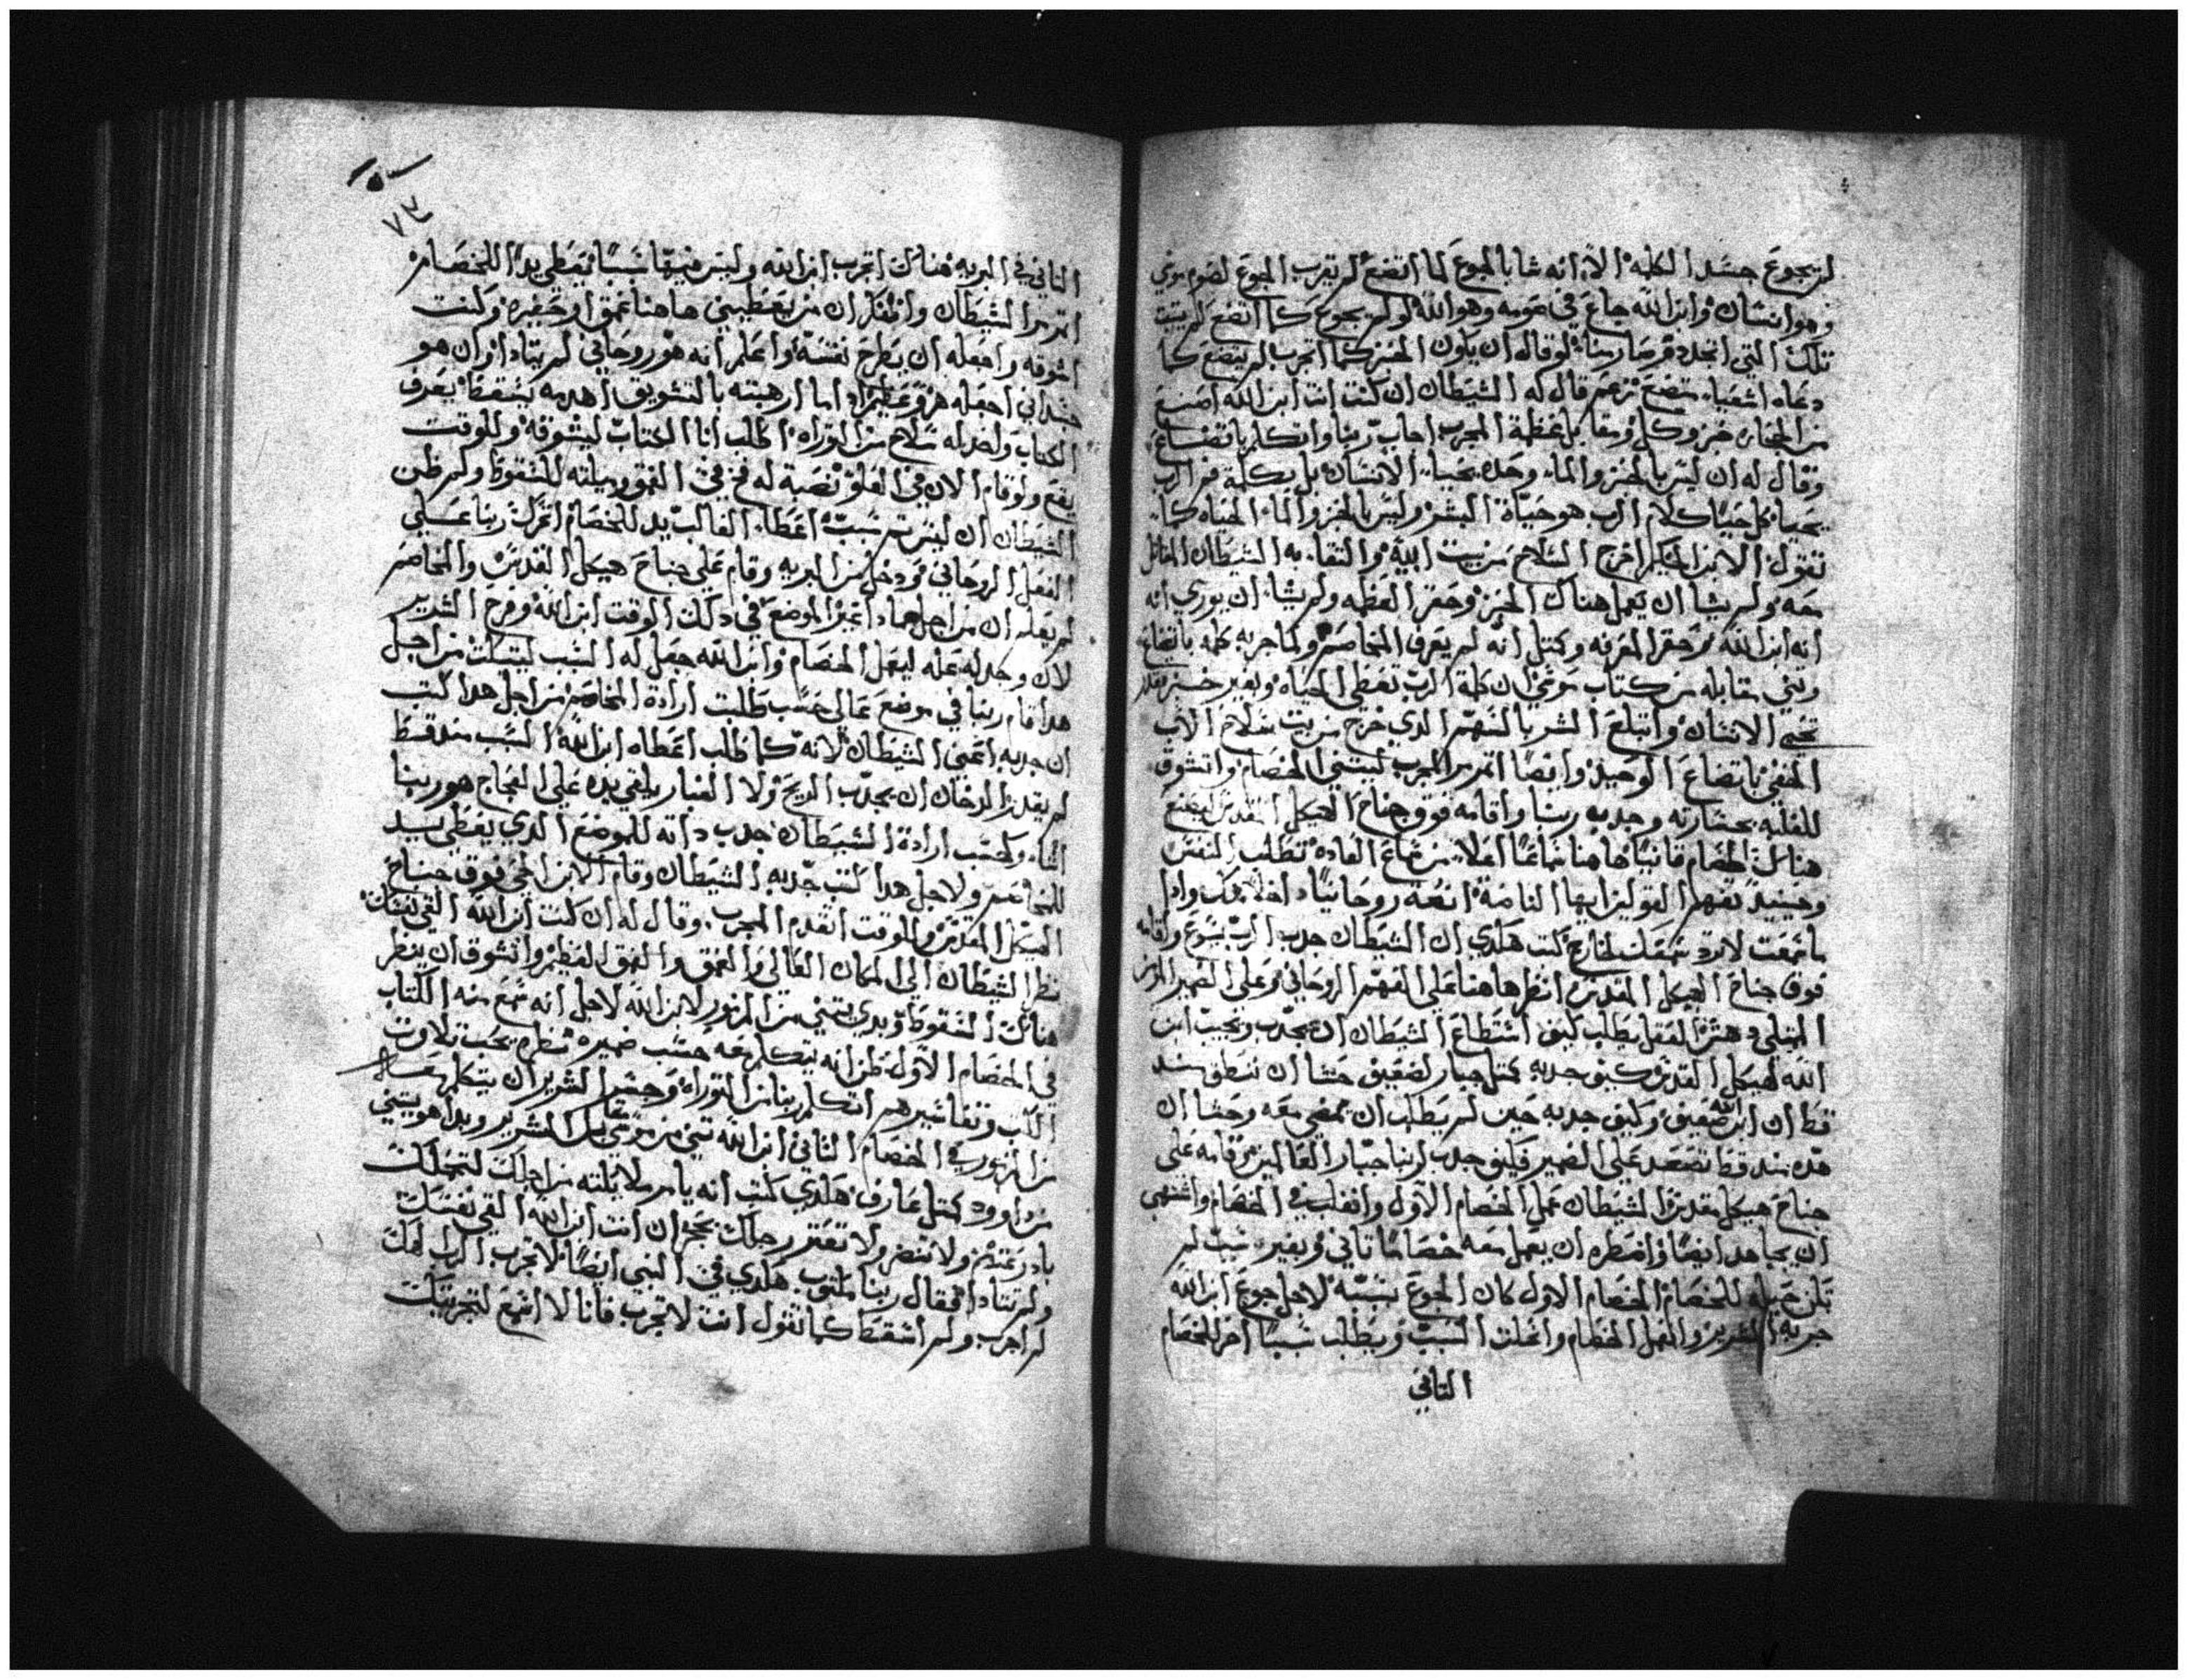 لم يجوع جسد الكلمه الا انه شا بالجوع لما اتضع لم يقرب الجوع لصوم موسي
وهو انسان وابن الله جاع في صومه وهو الله لو لم يجوع كما اتضع لم يثبت
تلك التي اتخد من ربنا لو قال ان يكون الخبز كما اتجرب لم يتضع كما
دعاه اشعياء متضع قال له الشيطان ان كنت انت ابن الله اصنع
من الحجاره خبز وكل ومقابل عظمة المجرب اجاب ربنا واتكلم باتضاع
وقال له ان ليس بالخبز والماء وحده يحيا الانسان بل بكلمة فم الرب
يحيا كل حيا كلام الرب هو حياة البشر وليس بالخبز والماء الحياه كما
تقول الابن الحكيم اخرج السلاح من بيت ابيه والتقا به الشيطان المقاتل
معه ولم يشا ان يعمل هناك الخبز وحقر العظمه ولم يشا ان يوري انه
انه ابن الله وحقر المعرفه وكتل انه لم يعرف المخاصم ولما جربه كلمه باتضاع
وبني مقابله من كتاب موسي ان كلمة الرب تعطي الحياه وبغير خبز يقدر
يحيي الانسان وابتلع الشر بالسهم الدي خرج من بيت سلاح الاب
المخفي باتضاع الوحيد وايضا اتمرمر المجرب ليبتني الخصام واتشوق
للغلبه بجسارته وجدبه ربنا واقامه فوق جناح الهيكل المقدس ليصنع
هناك الخصام ثانيا هاهنا سماعا اعلا من سماع العاده تطلب النفس
وحينيد تفهم القول ايها النامه اتعه روحانيا داخلا بك وادا
ما سمعت لا ترد سمعك لخارج كتب هكدي ان الشيطان جدب الرب يسوع واقامه
فوق جناح الهيكل المقدس انظر هاهنا علي الفهم الروحاني وعلي الضمير المرمز
الممتلي دهش العقل يطلب كيف استطاع الشيطان ان يجدب ويجيب ابن
الله لهيكل القدس كيف جدبه كمتل جبار لضعيف حشا ان ننطق بهده
قط ان ابن الله ضعيف وكيف جدبه حين لم يطلب ان يمضي معه وحشا ان
هده بهدا قط تصعد علي الضمير فكيف جدب لربنا جبار العالمين واقامه علي
جناح هيكل مقدس الشيطان عمل الخصام الاول وانغلب في الخصام واشتهي
ان يجاهد ايضا واضطره ان يعمل معه خصاما تاني وبغير سبب لم
تكن حيله للخصام الخصام الاول كان الجوع سببه لاجل جوع ابن الله
جربه الشرير وانعمل الخصام وانحلت السبب ويطلب سببا اخر للخصام
التاني
٧٣
التاني في البريه هناك اتجرب ابن الله وليس فيها سببا يعطي يدا للخصام
اتمرمر الشيطان وافتكر ان من يعطيني هاهنا عمق او حفيره وكنت
اشوقه واجعله ان يطرح نفسه واعلم انه هو روحاني لم يتادا وان هو
جسداني اجعله هزو عظيم ادا ما ارهبته بالتشويق اهديه يسقط يعرف
الكتاب واخد له سلاح من التوراه اطلب انا الكتاب ليشوقه وللوقت
يقع ولو قام الان في العلو نصبة له فخ في العمق وميلته للسقوط ولم ظن
الشيطان ان ليس ت سبب اعطا الغالب يد للخصام اتحرك ربنا علي
الفعل الروحاني ودخل من البريه وقام علي جناح هيكل القدس والمخاصم
لم يعلم ان من اجل مادا غير الموضع في دلك الوقت ابن الله وفرح الشرير
لان وجد له عله ليعمل الخصام وابن الله جعل له السبب ليتمسك من اجل
هدا قام ربنا في موضع عالي حسب طلبت ارادة المخاصم من اجل هدا كتب
ان جدبه اعني الشيطان لانه كما طلب اعطاه ابن الله السبب منه قط
لم يقدر الدخان ان يجدب الريح ولا الغبار يلقي يده علي العجاج هو ربنا
اشاء وكحسب ارادة الشيطان جدب داته للموضع الدي يعطي سبب
للمخاصم ولاجل هدا كتب جدبه الشيطان وقام الابن الحي فوق جناح
الهيكل المقدس وللوقت اتقدم المجرب وقال له ان كنت ابن الله القي نفسك
نظر الشيطان الي المكان العالي والعمق والفق العظيم واتشوق ان ينظر
هناك السقوط وبدي يبتني من المزمور لابن الله لاجل انه سمع منه الكتاب
في الخصام الاول ظن انه يتكلم معه حسب ضميره نظره يحب تلاوت
الكتب وتفاسيرهم اتكلم ربنا من التوراه وحسر الشرير ان يتكلم معه
من المزمور في الخصام التاني ابن الله تني من موسي مقابل الشرير وبدا هو يبتني
من داوود كمتل عارف هكدي كتب انه يامر ملايكته من اجلك لتحملك
بادرعتهم ولا تنضر ولا تعتر رجلك بحجر ان انت ابن الله القي نفسك
ولم تتادا فقال ربنا مكتوب هكدي في النبي ايضا لا تجرب الرب الهك
لم اجرب ولم اسقط كما تقول انت لا تجرب فانا لا اسمع لتجربتك